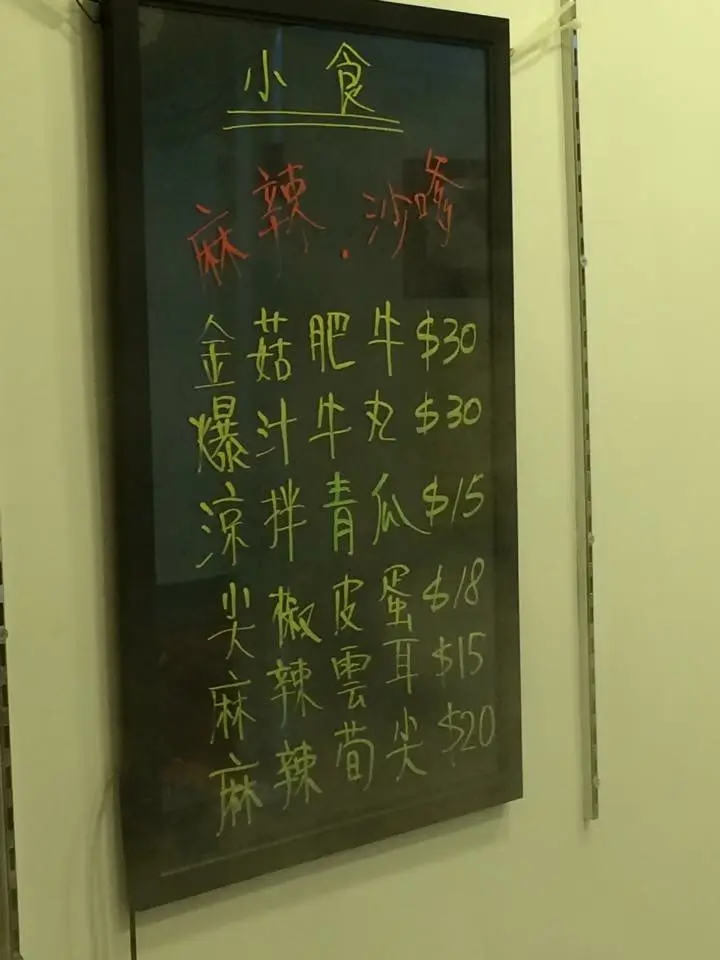 小食
麻辣.沙嗲
金菇肥牛$30
爆汁牛丸$30
涼拌青瓜$15
尖椒皮蛋$18
麻辣雲耳$15
麻辣荀尖$20